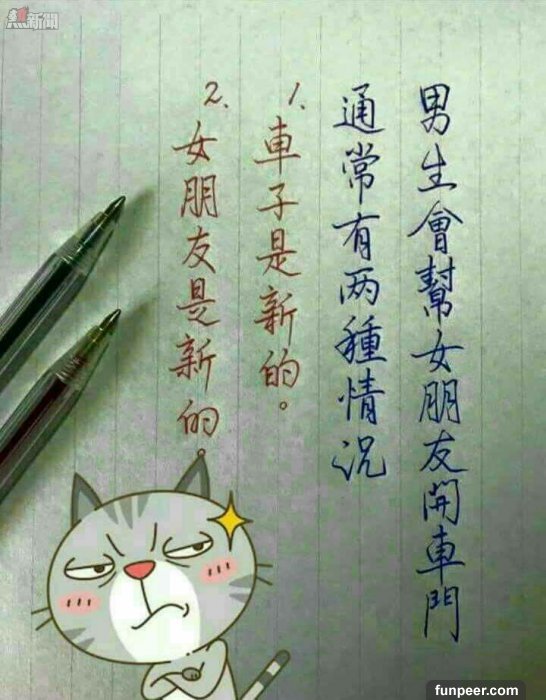 男生會幫女朋友開車門
通常有两種情況
1.車子是新的。
2.女朋友是新的。
焦新聞
funpeer.com